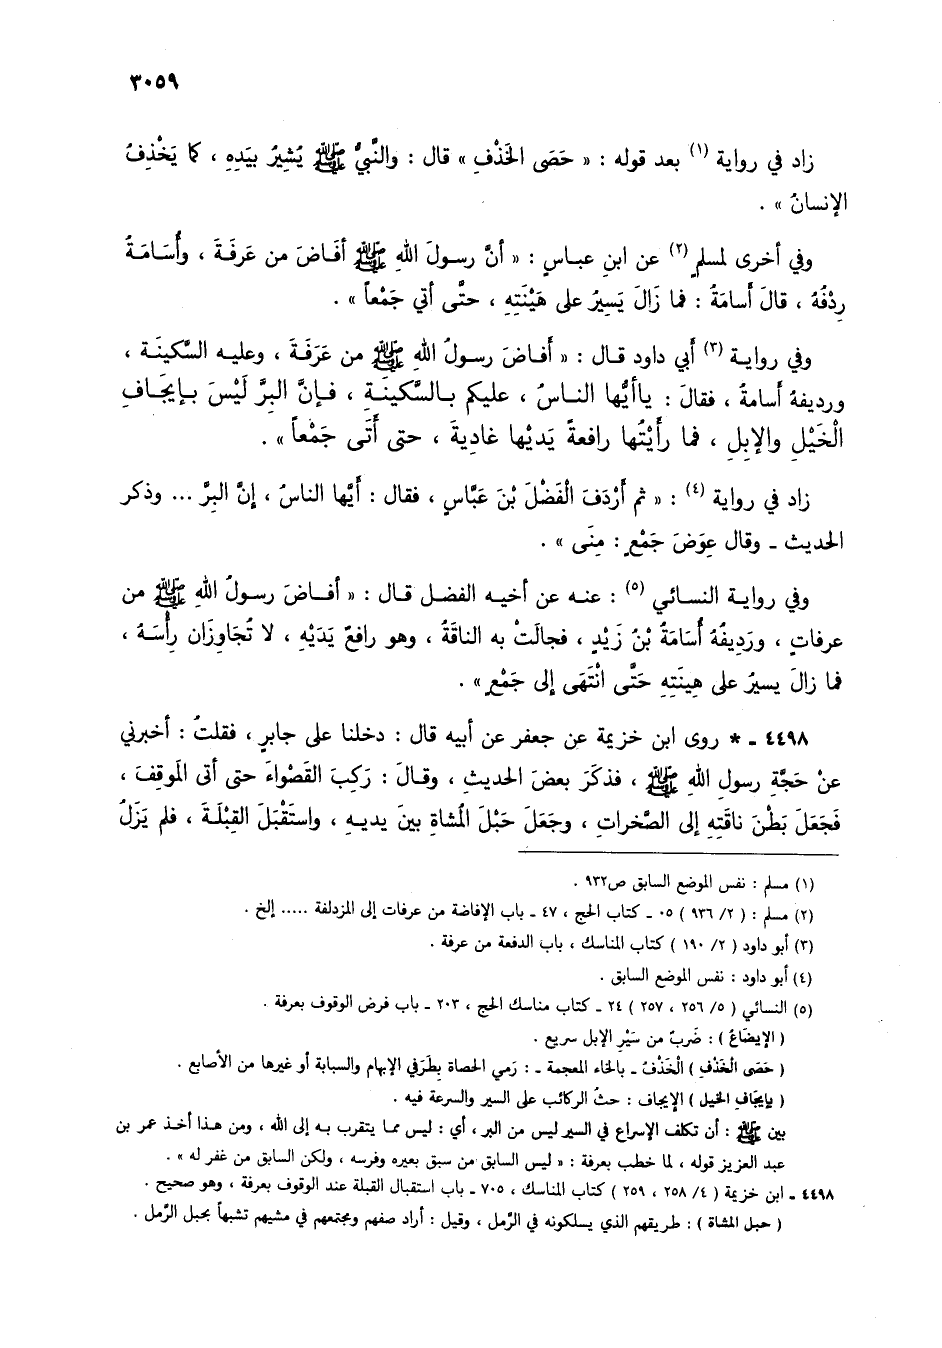 ٣٠٥٩
زاد في رواية (١) بعد قوله : « حَصَى الخَذْفِ » قال : والنَّبيُّ ﷺ يُشِيرُ بيَدِهِ ، كما يَخْذِفُ
الإنسانُ » .
وفي أخرى لمسلمٍ (٢) عن ابنِ عباسٍ : « أنَّ رسولَ اللهِ ﷺ أفَاضَ من عَرَفَةَ ، وأُسَامَةُ
رِدْفُهُ ، قالَ أُسامَةُ : فما زَالَ يَسِيرُ على هَيْنَتِهِ ، حتَّى أتي جَمْعاً » .
وفي رواية (٣) أبي داود قال : « أَفاضَ رسولُ اللهِ ﷺ من عَرَفَةَ ، وعليه السَّكينَة ،
ورديفهُ أُسامةُ ، فقالَ : ياأيُّها الناسُ ، عليكم بالسَّكينَةِ ، فإنَّ البِرَّ لَيْسَ بإيجَافِ
الْخَيْلِ والإبِلِ ، فما رأيْتُها رافعةً يَديْها غاديةَ ، حتى أَتَى جَمْعاً » .
زاد في رواية (٤) : « ثم أَرْدَفَ الْفَضْلَ بْنَ عَبَّاسٍ ، فقال : أَيُّها الناسُ ، إنَّ البِرَّ ... وذكر
الحديث ـ وقال عِوَضَ جَمْعٍ : مِنًى » .
وفي رواية النسائي (٥) : عنه عن أخيه الفضل قال : « أفاضَ رسولُ اللهِ ﷺ من
عرفاتٍ ، ورَدِيفُهُ أُسَامَةُ بْنُ زَيْدٍ ، فجالَتْ به الناقَةُ ، وهو رافعٌ يَدَيْهِ ، لا تُجَاوِزَان رأْسَهُ ،
فما زالَ يسيرُ على هِينَتِهِ حَتَّى انْتَهَى إلى جَمْعٍ » .
٤٤٩٨ ـ * روى ابن خزيمة عن جعفر عن أبيه قال : دخلنا على جابرٍ ، فقلتُ : أخبرني
عنْ حَجَّةِ رسولِ اللهِ ﷺ ، فذكَرَ بعضَ الحديثِ ، وقالَ : رَكِبَ القَصْواءَ حتى أتى المَوقِفَ ،
فَجَعَلَ بَطْنَ ناقَتِهِ إلى الصَّخراتِ ، وجَعَلَ حَبْلَ المُشاةِ بينَ يديهِ ، واستَقْبَلَ القِبْلَةَ ، فلم يَزَلْ
(١) مسلم : نفس الموضع السابق ص٩٣٢ .
(٢) مسلم : ( ٢/ ٩٣٦ ) ٠٥ ـ كتاب الحج ، ٤٧ ـ باب الإفاضة من عرفات إلى المزدلفة ..... إلخ .
(٣) أبو داود ( ٢/ ١٩٠ ) كتاب المناسك ، باب الدفعة من عرفة .
(٤) أبو داود : نفس الموضع السابق .
(٥) النسائي ( ٥/ ٢٥٦ ، ٢٥٧ ) ٢٤ ـ كتاب مناسك الحج ، ٢٠٣ ـ باب فرض الوقوف بعرفة .
( الإيضَاعُ ) : ضَربٌ من سَيْرِ الإبل سريع .
( حَصَى الْخَذْف ) الْخَذْفُ ـ بالخاء المعجمة ـ : رَمي الحصاة بِطَرَفي الإبهام والسبابة أو غيرها من الأصابع .
( بإيجَافِ الخيل ) الإيجاف : حثُ الركائب على السير والسرعة فيه .
بين ﷺ : أن تكلف الإسراع في السير ليس من البر ، أي : ليس مما يتقرب به إلى الله ، ومن هذا أخذ عمر بن
عبد العزيز قوله ، لما خطب بعرفة : « ليس السابق من سبق بعيره وفرسه ، ولكن السابق من غفر له » .
٤٤٩٨ ـ ابن خزيمة ( ٤/ ٢٥٨ ، ٢٥٩ ) كتاب المناسك ، ٧٠٥ ـ باب استقبال القبلة عند الوقوف بعرفة ، وهو صحيح .
( حبل المشاة ) : طريقهم الذي يسلكونه في الرَّمل ، وقيل : أراد صفهم ومجتمعهم في مشيهم تشبهاً بحبل الرَّمل .